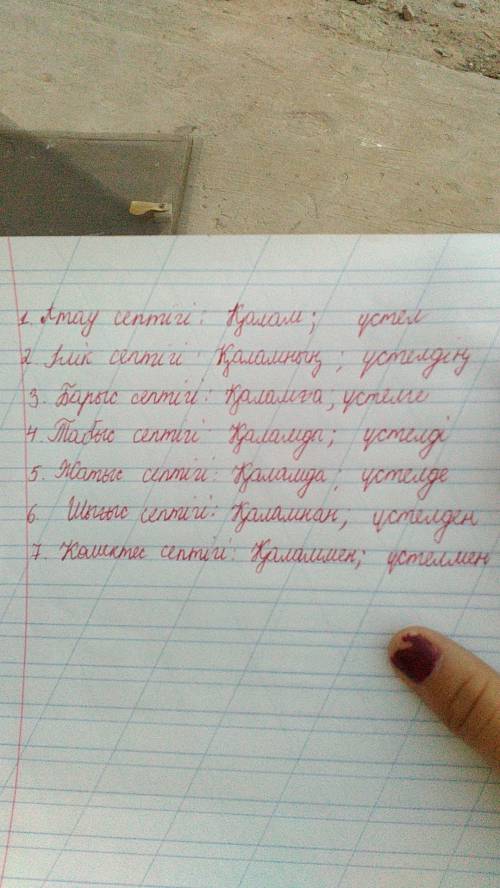 1. Атау септігі: Қалам; үстел
2. Ілік септігі: Қаламның; үстелдің
3. Барыс септігі: Қаламға; үстелге
4. Табыс септігі: Қаламды; үстелді
5. Жатыс септігі: Қаламда; үстелде
6. Шығыс септігі: Қаламнан, үстелден
7. Көмектес септігі: Қаламмен; үстелмен